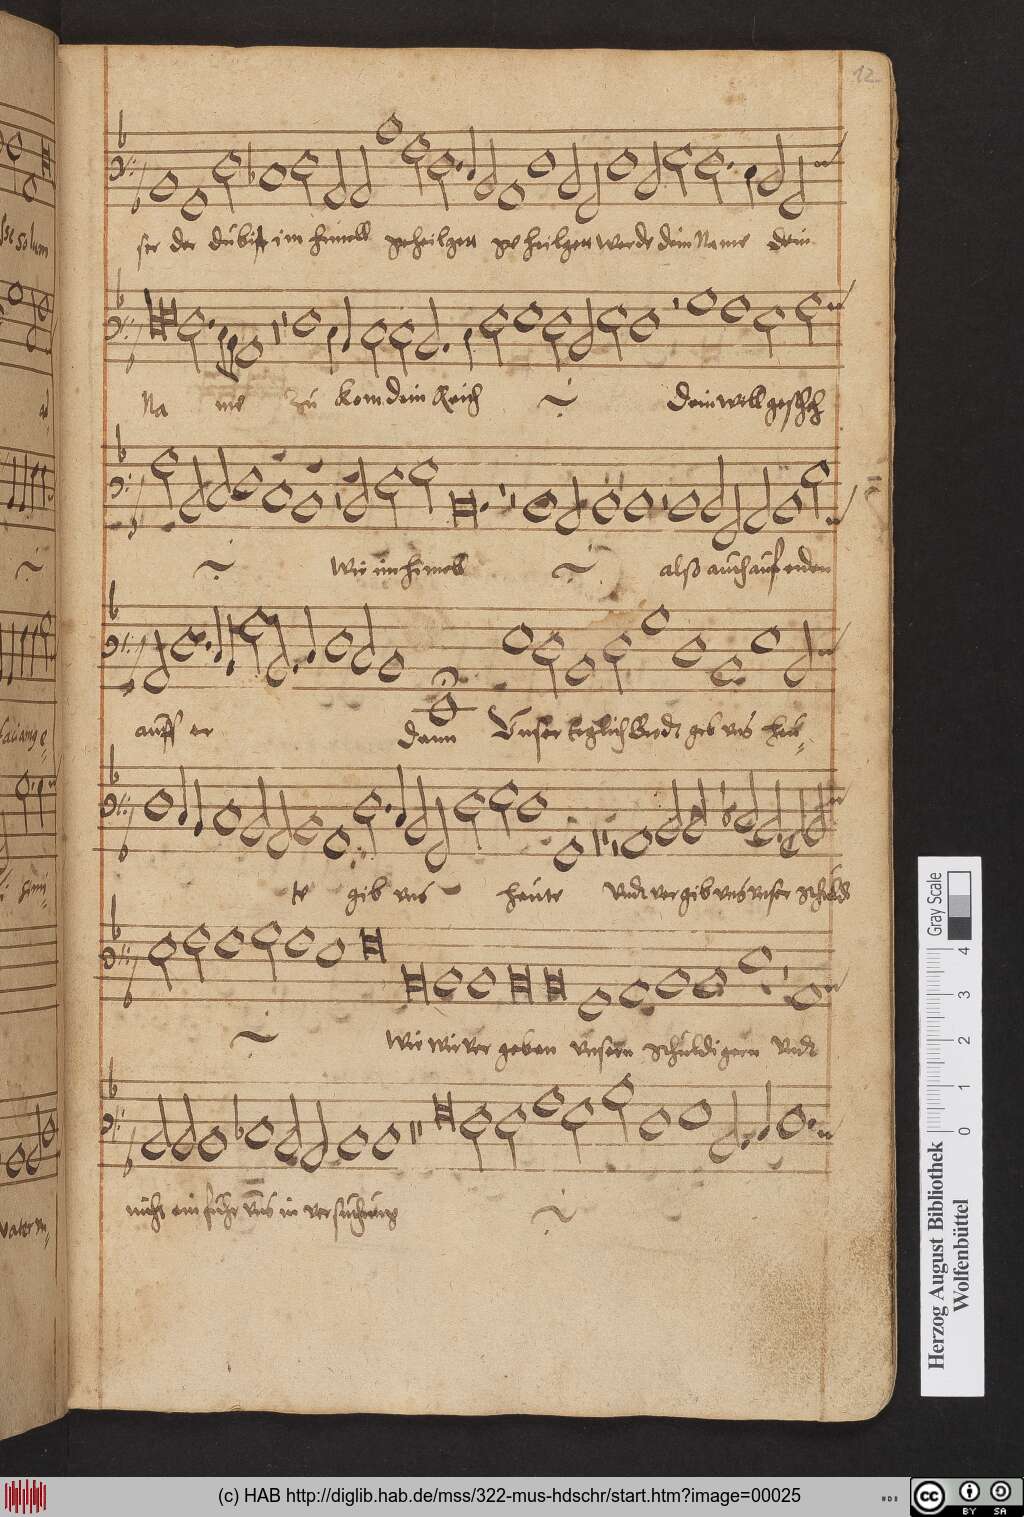 12
ser der du bist im himell geheilgett geheilgett werde dein Name dein
Na me zu kom dein Reich dein will gescheh
wie im himell also auch auf erden
auff er denn Unser teglich Brodt geb uns heu
te gib uns heute Undt vergib uns unser schuldt
wie wir vergeben unsern schuldigern Undt
nicht ein fuhr uns in versuchung
Gray Scale
0 1 2 3 4
Herzog August Bibliothek
Wolfenbüttel
(c) HAB http://diglib.hab.de/mss/322-mus-hdschr/start.htm?image=00025
cc BY SA